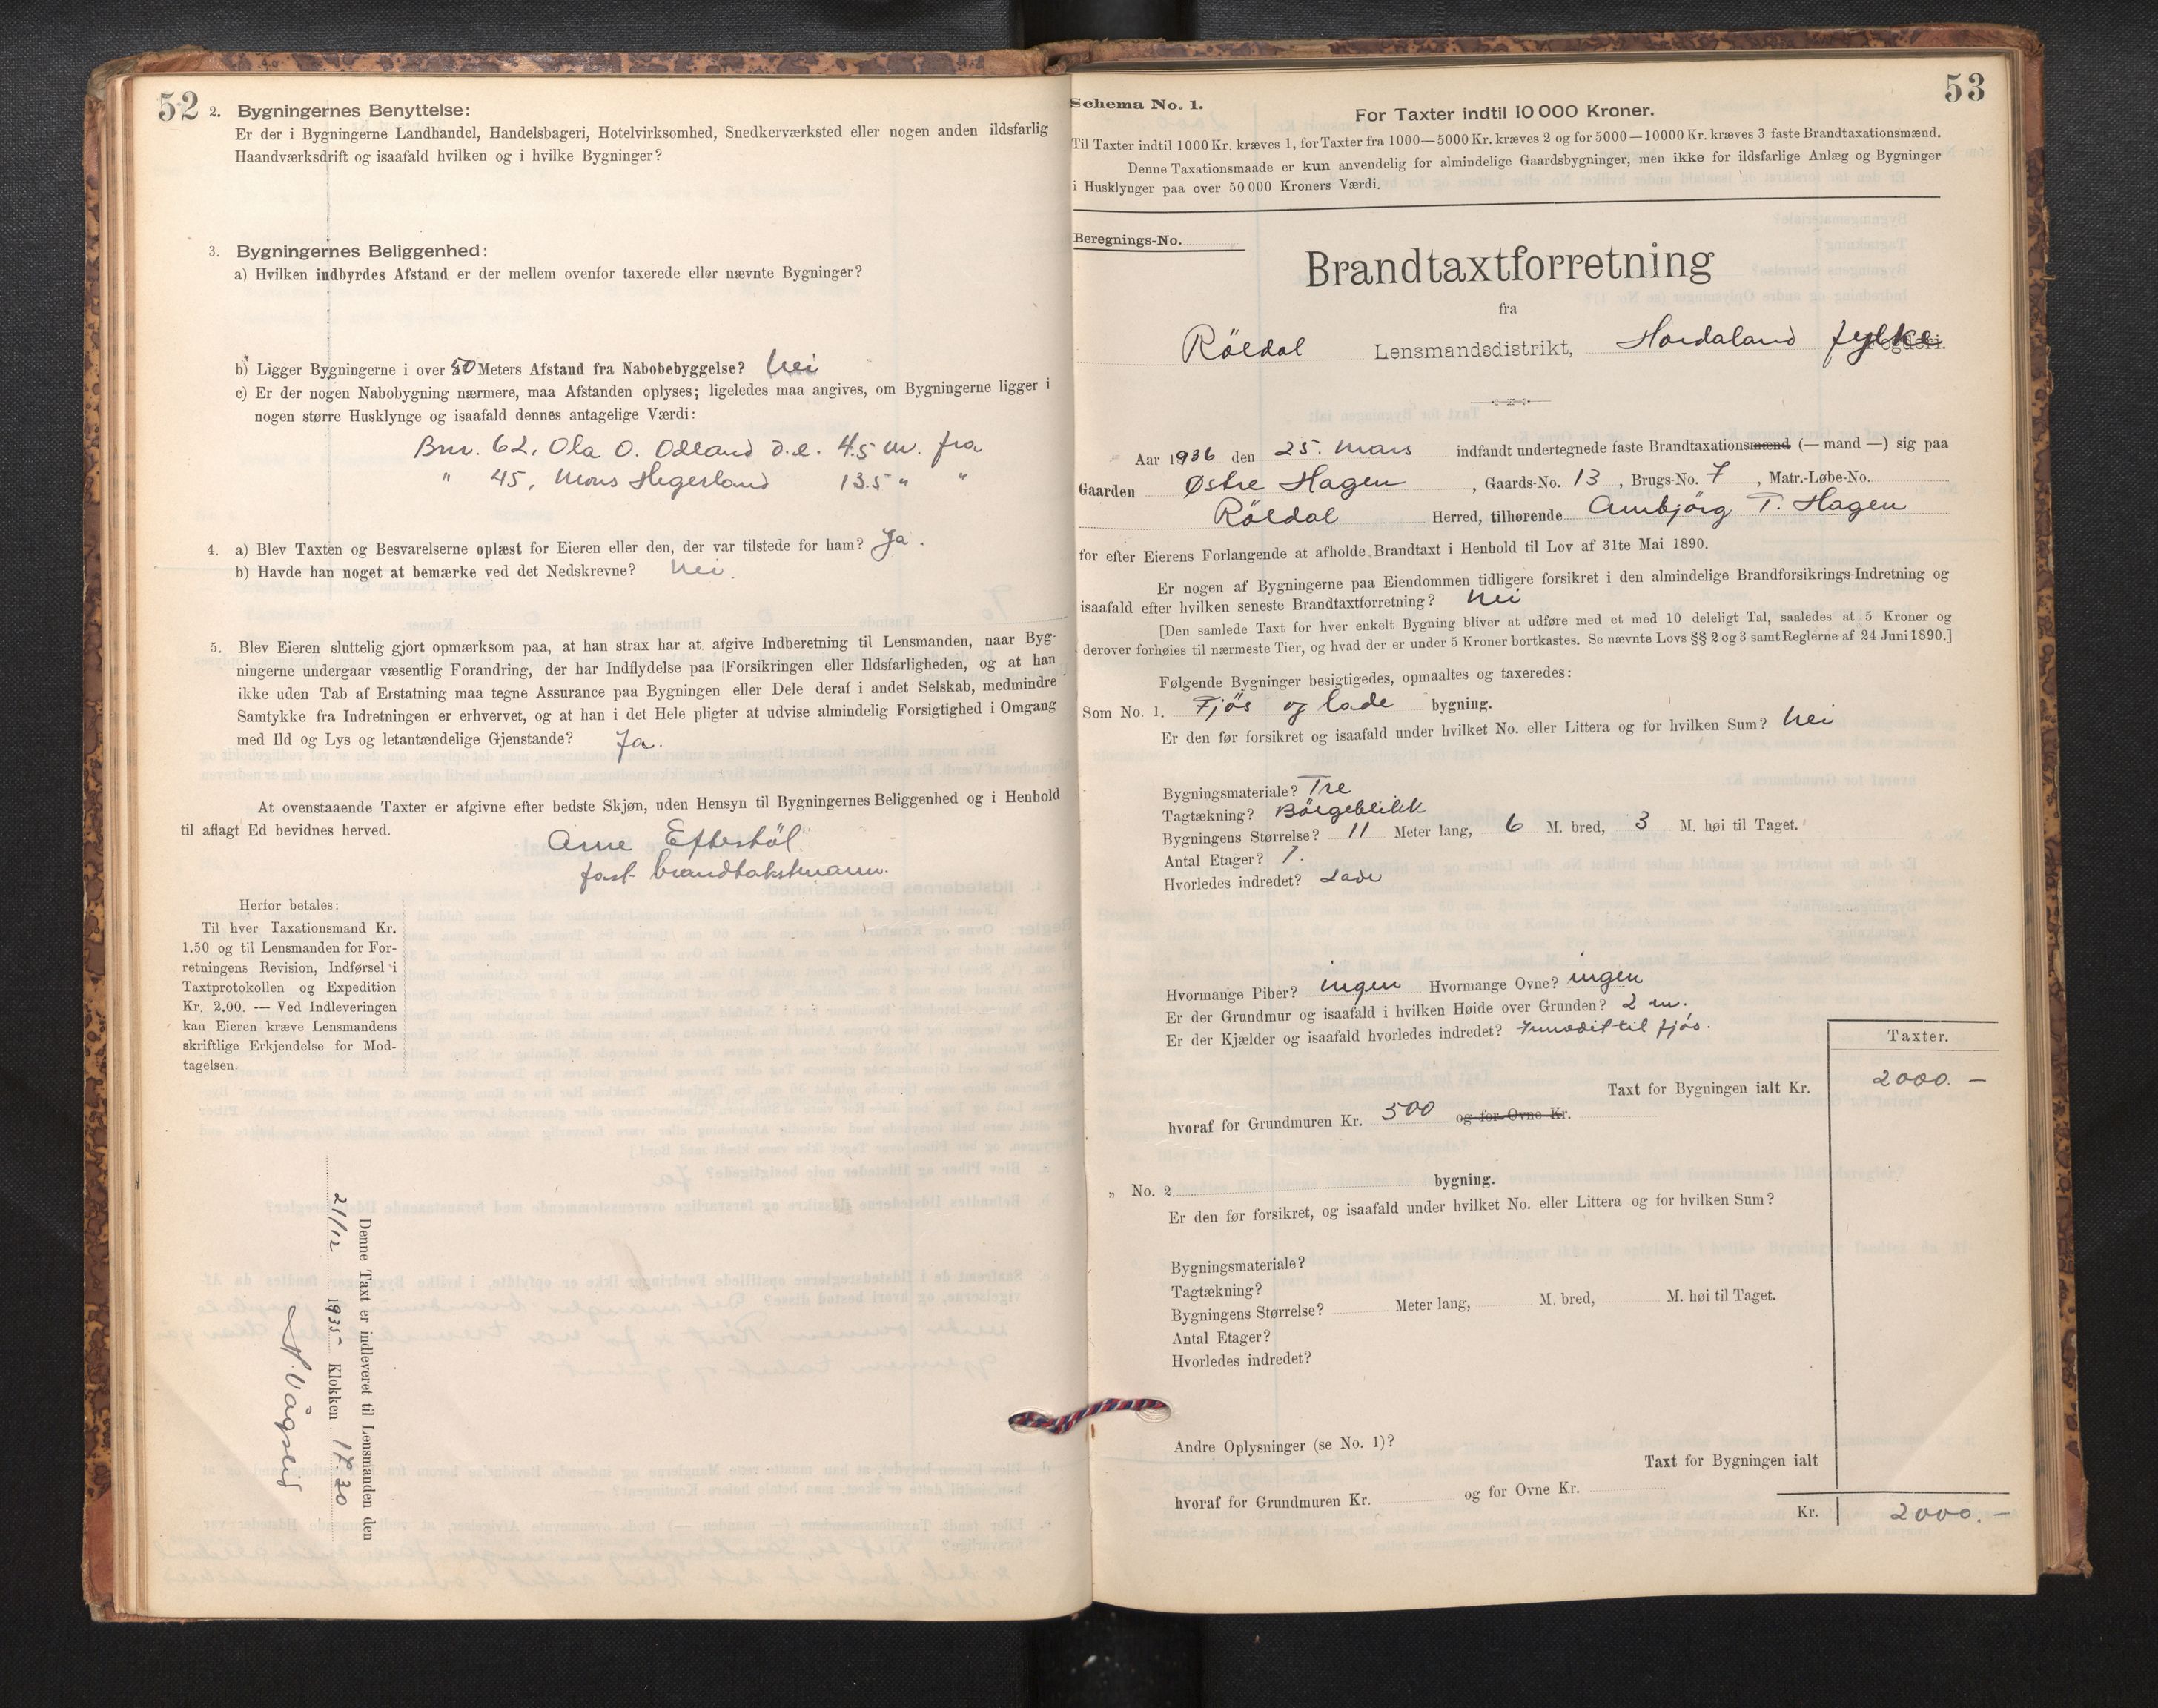 52
2. Bygningernes Benyttelse:
Er der i Bygningerne Landhandel, Handelsbageri, Hotelvirksomhed, Snedkerværksted eller nogen anden ildsfarlig
Haandværksdrift og isaafald hvilken og i hvilke Bygninger?
3. Bygningernes Beliggenhed:
a) Hvilken indbyrdes Afstand er der mellem ovenfor taxerede eller nævnte Bygninger?
b) Ligger Bygningerne i over 50 Meters Afstand fra Nabobebyggelse? Nei
c) Er der nogen Nabobygning nærmere, maa Afstanden oplyses; ligeledes maa angives, om Bygningerne ligger i
nogen større Husklynge og isaafald dennes antagelige Værdi:
Bnr. 62, Ola O. Odland d.e. 4.5 m. fra
" 45, Mons Hegerland 13.5 " "
4. a) Blev Taxten og Besvarelserne oplæst for Eieren eller den, der var tilstede for ham? Ja.
b) Havde han noget at bemærke ved det Nedskrevne? Nei.
5. Blev Eieren sluttelig gjort opmærksom paa, at han strax har at afgive Indberetning til Lensmanden, naar Byg-
ningerne undergaar væsentlig Forandring, der har Indflydelse paa Forsikringen eller Ildsfarligheden, og at han
ikke uden Tab af Erstatning maa tegne Assurance paa Bygningen eller Dele deraf i andet Selskab, medmindre
Samtykke fra Indretningen er erhvervet, og at han i det Hele pligter at udvise almindelig Forsigtighed i Omgang
med Ild og Lys og letantændelige Gjenstande? Ja.
At ovenstaaende Taxter er afgivne efter bedste Skjøn, uden Hensyn til Bygningernes Beliggenhed og i Henhold
til aflagt Ed bevidnes herved.
Arne Eftestöl.
fast brandtakstmann.
Herfor betales:
Til hver Taxationsmand Kr.
1.50 og til Lensmanden for For-
retningens Revision, Indførsel i
Taxtprotokollen og Expedition
Kr. 2.00. — Ved Indleveringen
kan Eieren kræve Lensmandens
skriftlige Erkjendelse for Mod-
tagelsen.
Denne Taxt er indleveret til Lensmanden den
21/12 1935 Klokken 17.30
N. Vågslid
53
Schema No. 1.
For Taxter indtil 10 000 Kroner.
Til Taxter indtil 1000 Kr. kræves 1, for Taxter fra 1000—5000 Kr. kræves 2 og for 5000—10000 Kr. kræves 3 faste Brandtaxationsmænd.
Denne Taxationsmaade er kun anvendelig for almindelige Gaardsbygninger, men ikke for ildsfarlige Anlæg og Bygninger
i Husklynger paa over 50 000 Kroners Værdi.
Beregnings-No.
Brandtaxtforretning
fra
Röldal Lensmandsdistrikt, Hordaland fylke Fogderi.
Aar 1936 den 25. mars indfandt undertegnede faste Brandtaxationsmænd (— mand —) sig paa
Gaarden Østre Hagen, Gaards-No. 13, Brugs-No. 7, Matr.-Løbe-No.
Röldal Herred, tilhørende Annbjörg T. Hagen
for efter Eierens Forlangende at afholde Brandtaxt i Henhold til Lov af 31te Mai 1890.
Er nogen af Bygningerne paa Eiendommen tidligere forsikret i den almindelige Brandforsikrings-Indretning og
isaafald efter hvilken seneste Brandtaxtforretning? Nei
[Den samlede Taxt for hver enkelt Bygning bliver at udføre med et med 10 deleligt Tal, saaledes at 5 Kroner og
derover forhøies til nærmeste Tier, og hvad der er under 5 Kroner bortkastes. Se nævnte Lovs §§ 2 og 3 samt Reglerne af 24 Juni 1890.]
Følgende Bygninger besigtigedes, opmaaltes og taxeredes:
Som No. 1. Fjös og lade bygning.
Er den før forsikret og isaafald under hvilket No. eller Littera og for hvilken Sum? Nei
Bygningsmateriale? Tre
Tagtækning? Bölgeblikk
Bygningens Størrelse? 11 Meter lang, 6 M. bred, 3 M. høi til Taget.
Antal Etager? 1.
Hvorledes indredet? Lade
Hvormange Piber? ingen Hvormange Ovne? ingen
Er der Grundmur og isaafald i hvilken Høide over Grunden? 2 m.
Er der Kjælder og isaafald hvorledes indredet? Innredet til fjös.
Taxter.
Taxt for Bygningen ialt Kr. 2000.—
hvoraf for Grundmuren Kr. 500 og for Ovne Kr.
„ No. 2 bygning.
Er den før forsikret, og isaafald under hvilket No. eller Littera og for hvilken Sum?
Bygningsmateriale?
Tagtækning?
Bygningens Størrelse? Meter lang, M. bred, M. høi til Taget.
Antal Etager?
Hvorledes indredet?
Andre Oplysninger (se No. 1)?
Taxt for Bygningen ialt
hvoraf for Grundmuren Kr. og for Ovne Kr.
Kr. 2000.—